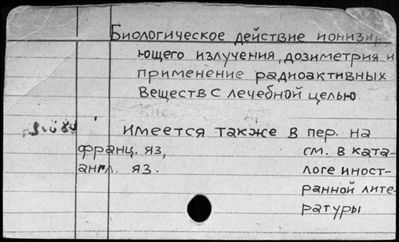 Биологическое действие ионизир
ующего излучения, дозиметрия и
применение радиоактивных
веществ с лечебной целью
Имеется также в пер. на
франц. яз, см. в ката-
англ. яз. логе иност-
ранной лите-
ратуры